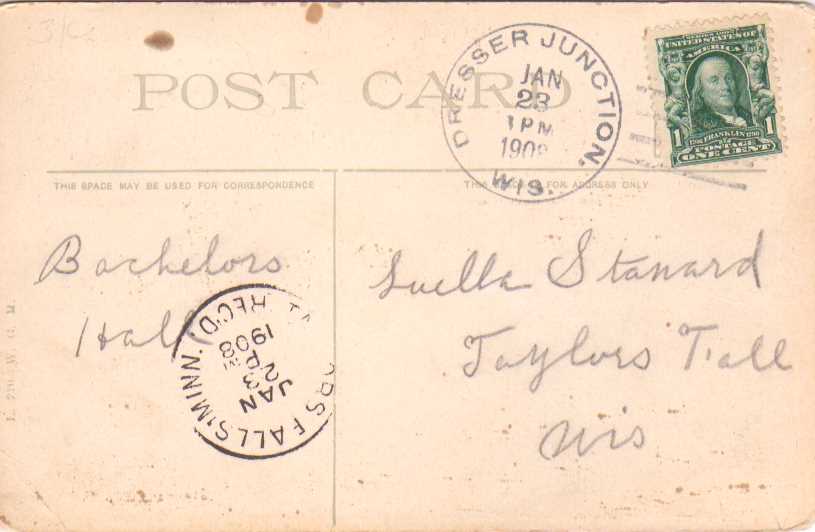 31C
POST CARD
DRESSER JUNCTION, WIS.
JAN
23
1 PM
1908
UNITED STATES OF
AMERICA
1 1706 FRANKLIN 1790 1
POSTAGE
ONE CENT
THIS SPACE MAY BE USED FOR CORRESPONDENCE
THIS SPACE FOR ADDRESS ONLY
Bachelors
Hall
Luella Stanard
Taylors Fall
Wis
RS FALLS, MINN. REC'D.
JAN
2 PM
1908